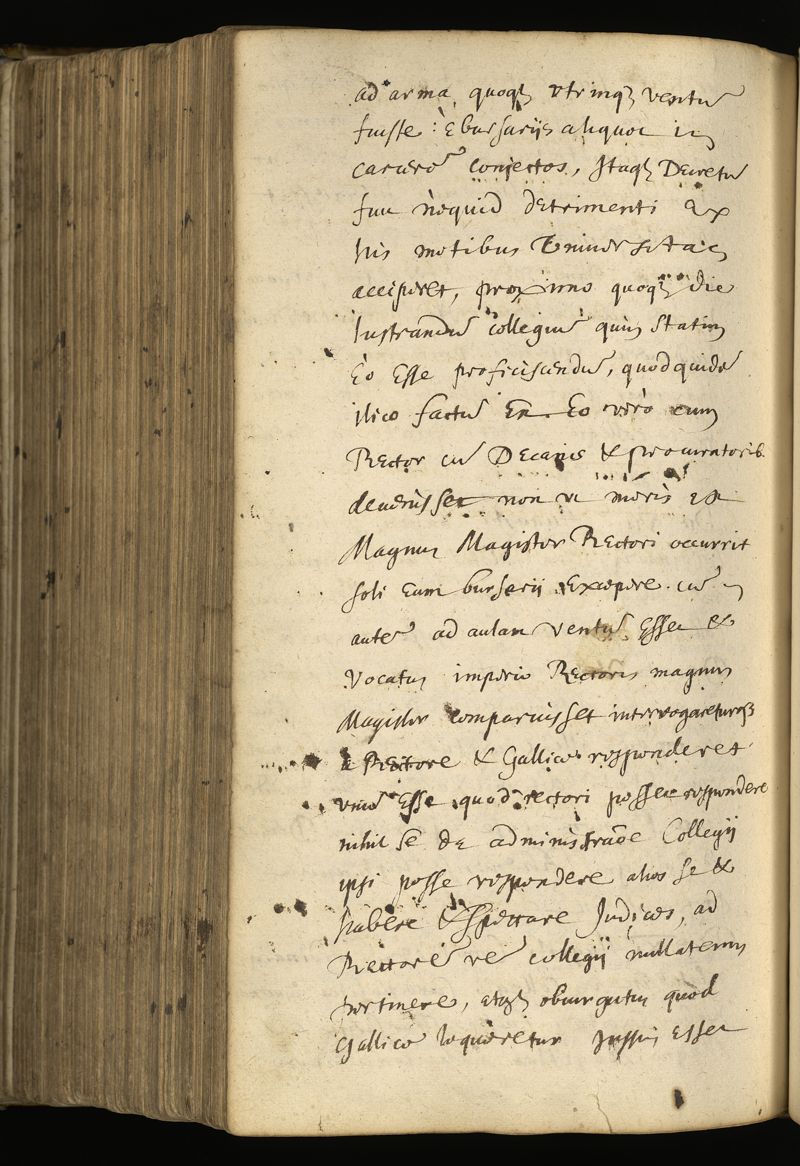 ad arma quoq₃ vtrinq₃ ventū
fuisse : è bursarijs aliquot in
carcerē conjectos, Itaq₃ Decretū
fuit nèquid detrimenti ex
his motibus Vniversitas
acciperet, proximo quoq₃ die
lustrandū collegiū quin statim
Eò Esse proficiscendū, quod quidē
ilico factū Est. Eo vèrò cum
Rector cū Decanis & procuratorib.
devenisset non vt moris est
Magnus Magister Rectori occurrit
soli Eum bursarij Excepere. cū
autē ad aulam ventū Esset &
vocatus imperio Rectoris magnus
Magister comparuisset interrogareturq₃
à Rectore & Gallicè responderet
vnū Esse quod rectori posset respondere
nihil se de administraōe Collegij
ipsi posse respondere alios se &
habere & spectare Judices, ad
Rectorē rē collegij nullatenus
pertinere, atq₃ obiurgatus quod
Gallicè loqueretur jussus Esset